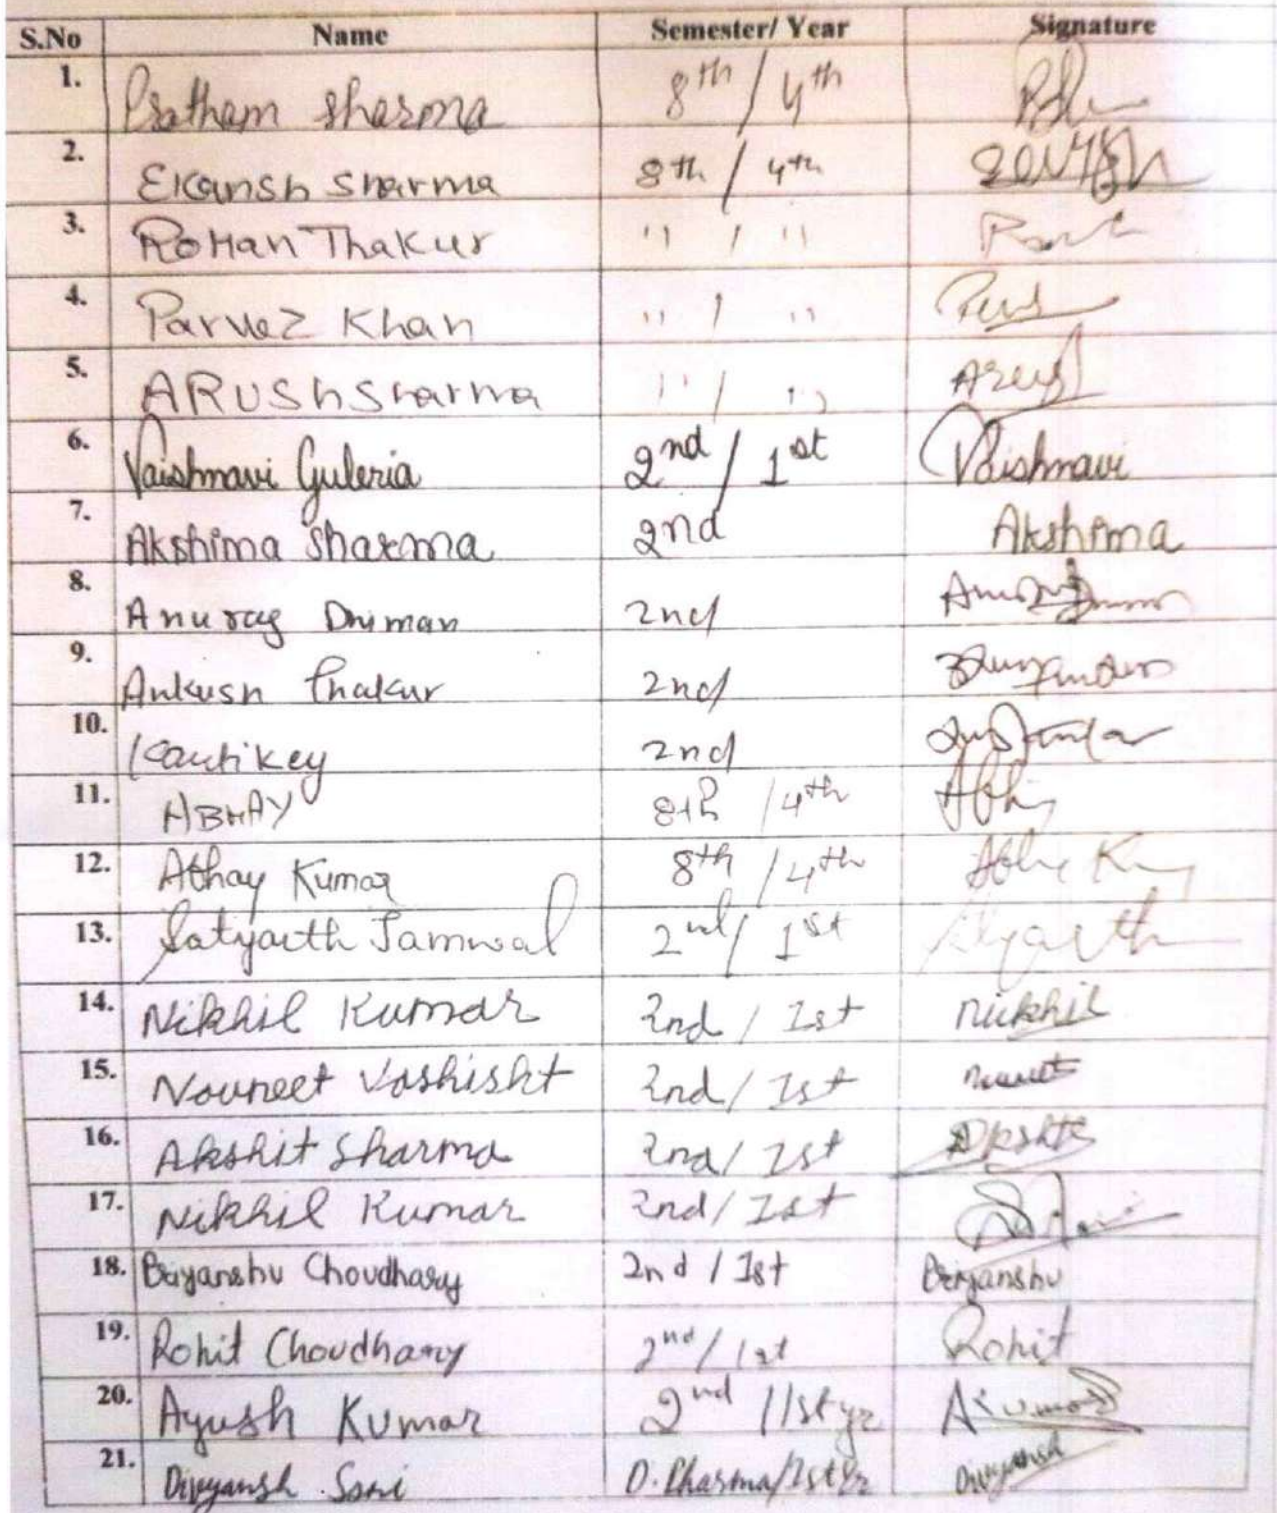 S.No Name Semester/ Year Signature
1. Pratham Sharma 8th / 4th
2. Ekansh Sharma 8th / 4th
3. Rohan Thakur " / "
4. Parvez Khan " / "
5. ARUSh Sharma " / " Arush
6. Vaishnavi Guleria 2nd / 1st Vaishnavi
7. Akshima Sharma 2nd Akshima
8. Anurag Dhiman 2nd
9. Ankush Thakur 2nd
10. Kartikey 2nd
11. ABHAY 8th / 4th Abhay
12. Abhay Kumar 8th / 4th
13. Satyarth Jamwal 2nd / 1st Satyarth
14. Nikhil Kumar 2nd / Ist Nikhil
15. Navneet Vashisht 2nd / Ist Navneet
16. Akshit Sharma 2nd / Ist Akshit
17. Nikhil Kumar 2nd / Ist
18. Priyanshu Choudhary 2nd / Ist Priyanshu
19. Rohit Choudhary 2nd / 1st Rohit
20. Ayush Kumar 2nd / 1st yr A Kumar
21. Divyansh Soni D. Pharma/Ist Yr Divyansh